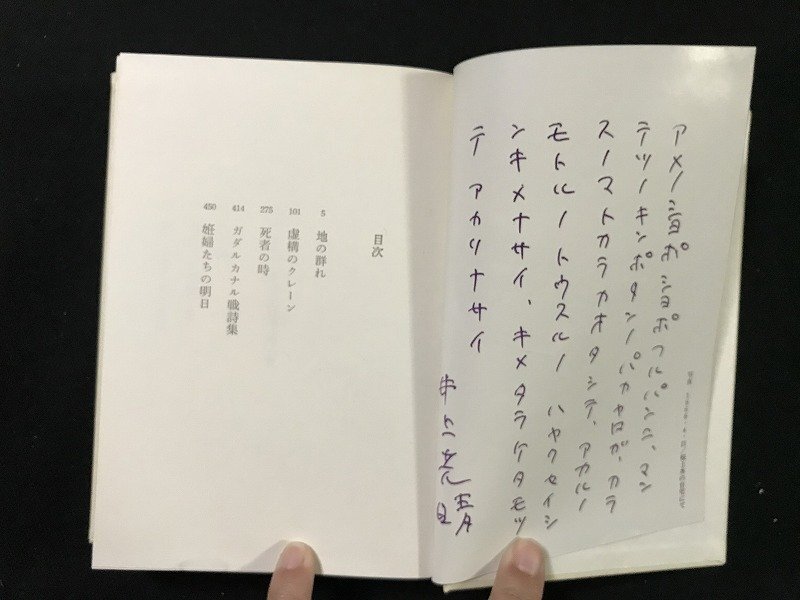 アメノショポショポフルパンニ、マン
テツノキンポタンノパカヤロガ、カラ
スノマトカラカオタシテ、アカルノ
モトルノトウスルノ ハヤクセイシ
ンキメナサイ、キメタラケタモッ
テ アカリナサイ
井上光晴
桜上水の自宅にて
目次
5 地の群れ
101 虚構のクレーン
275 死者の時
414 ガダルカナル戦詩集
450 妊婦たちの明日